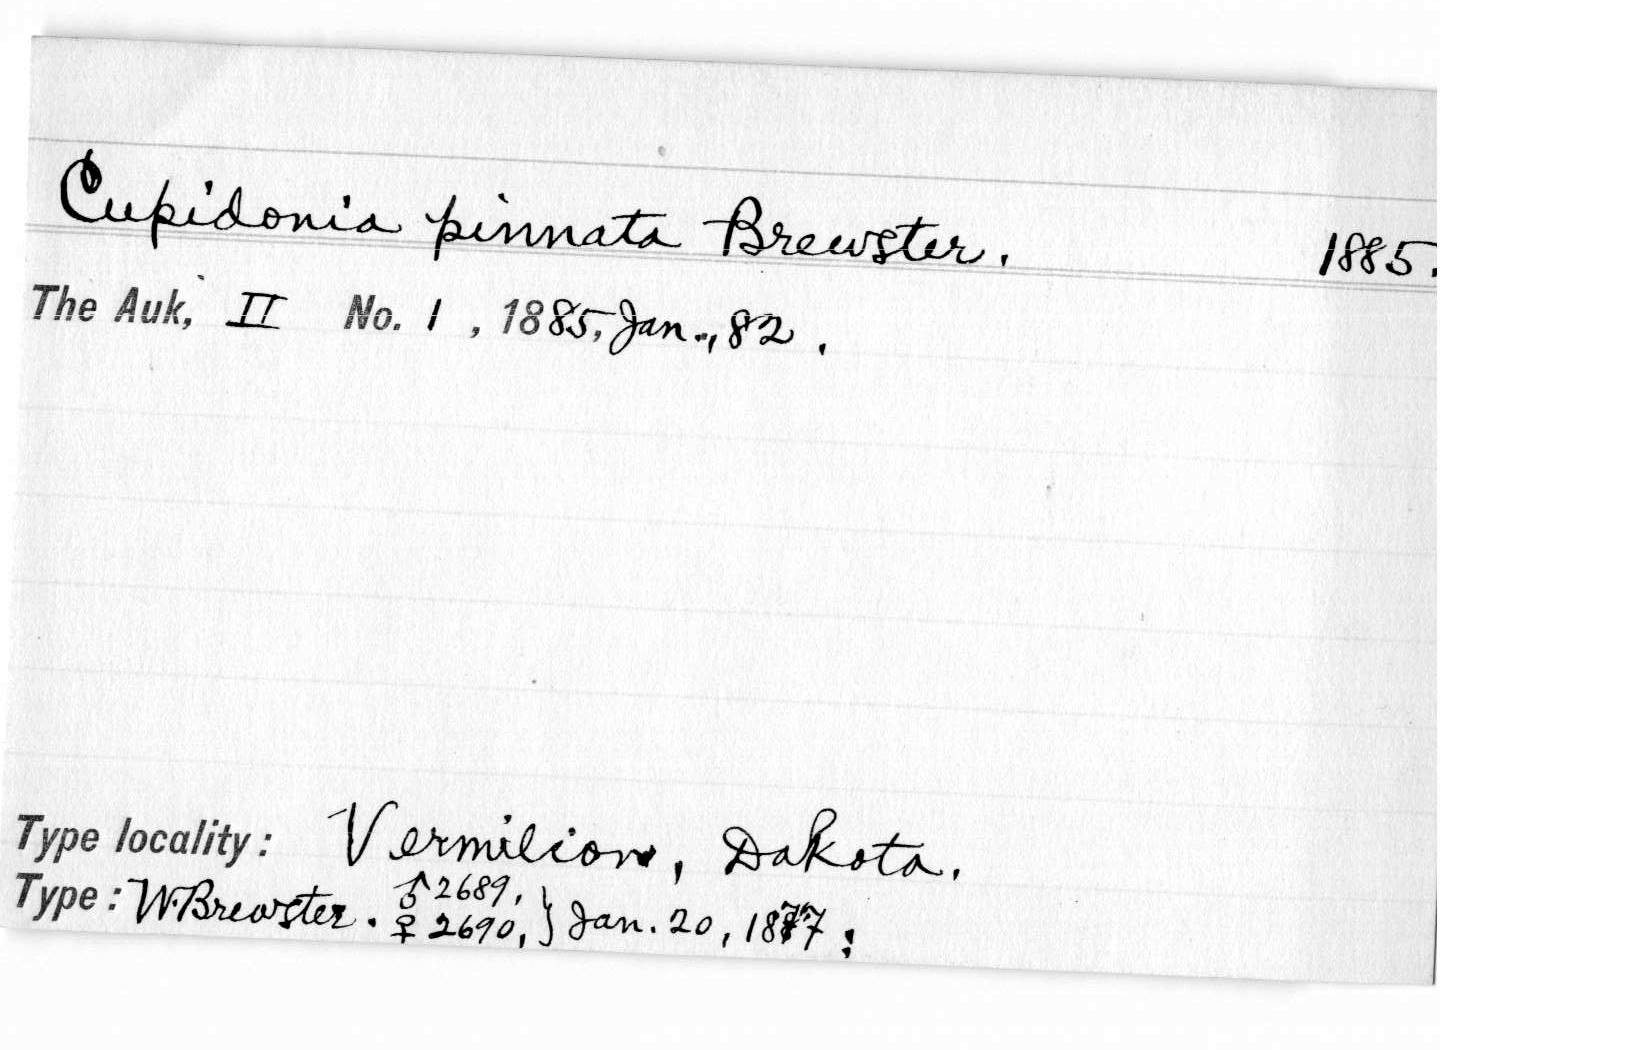 Cupidonia pinnata Brewster. 1885.
The Auk, II No. 1, 1885, Jan., 82.
Type locality: Vermilion, Dakota.
Type: W. Brewster. ♂ 2689,
♀ 2690, } Jan. 20, 1877;